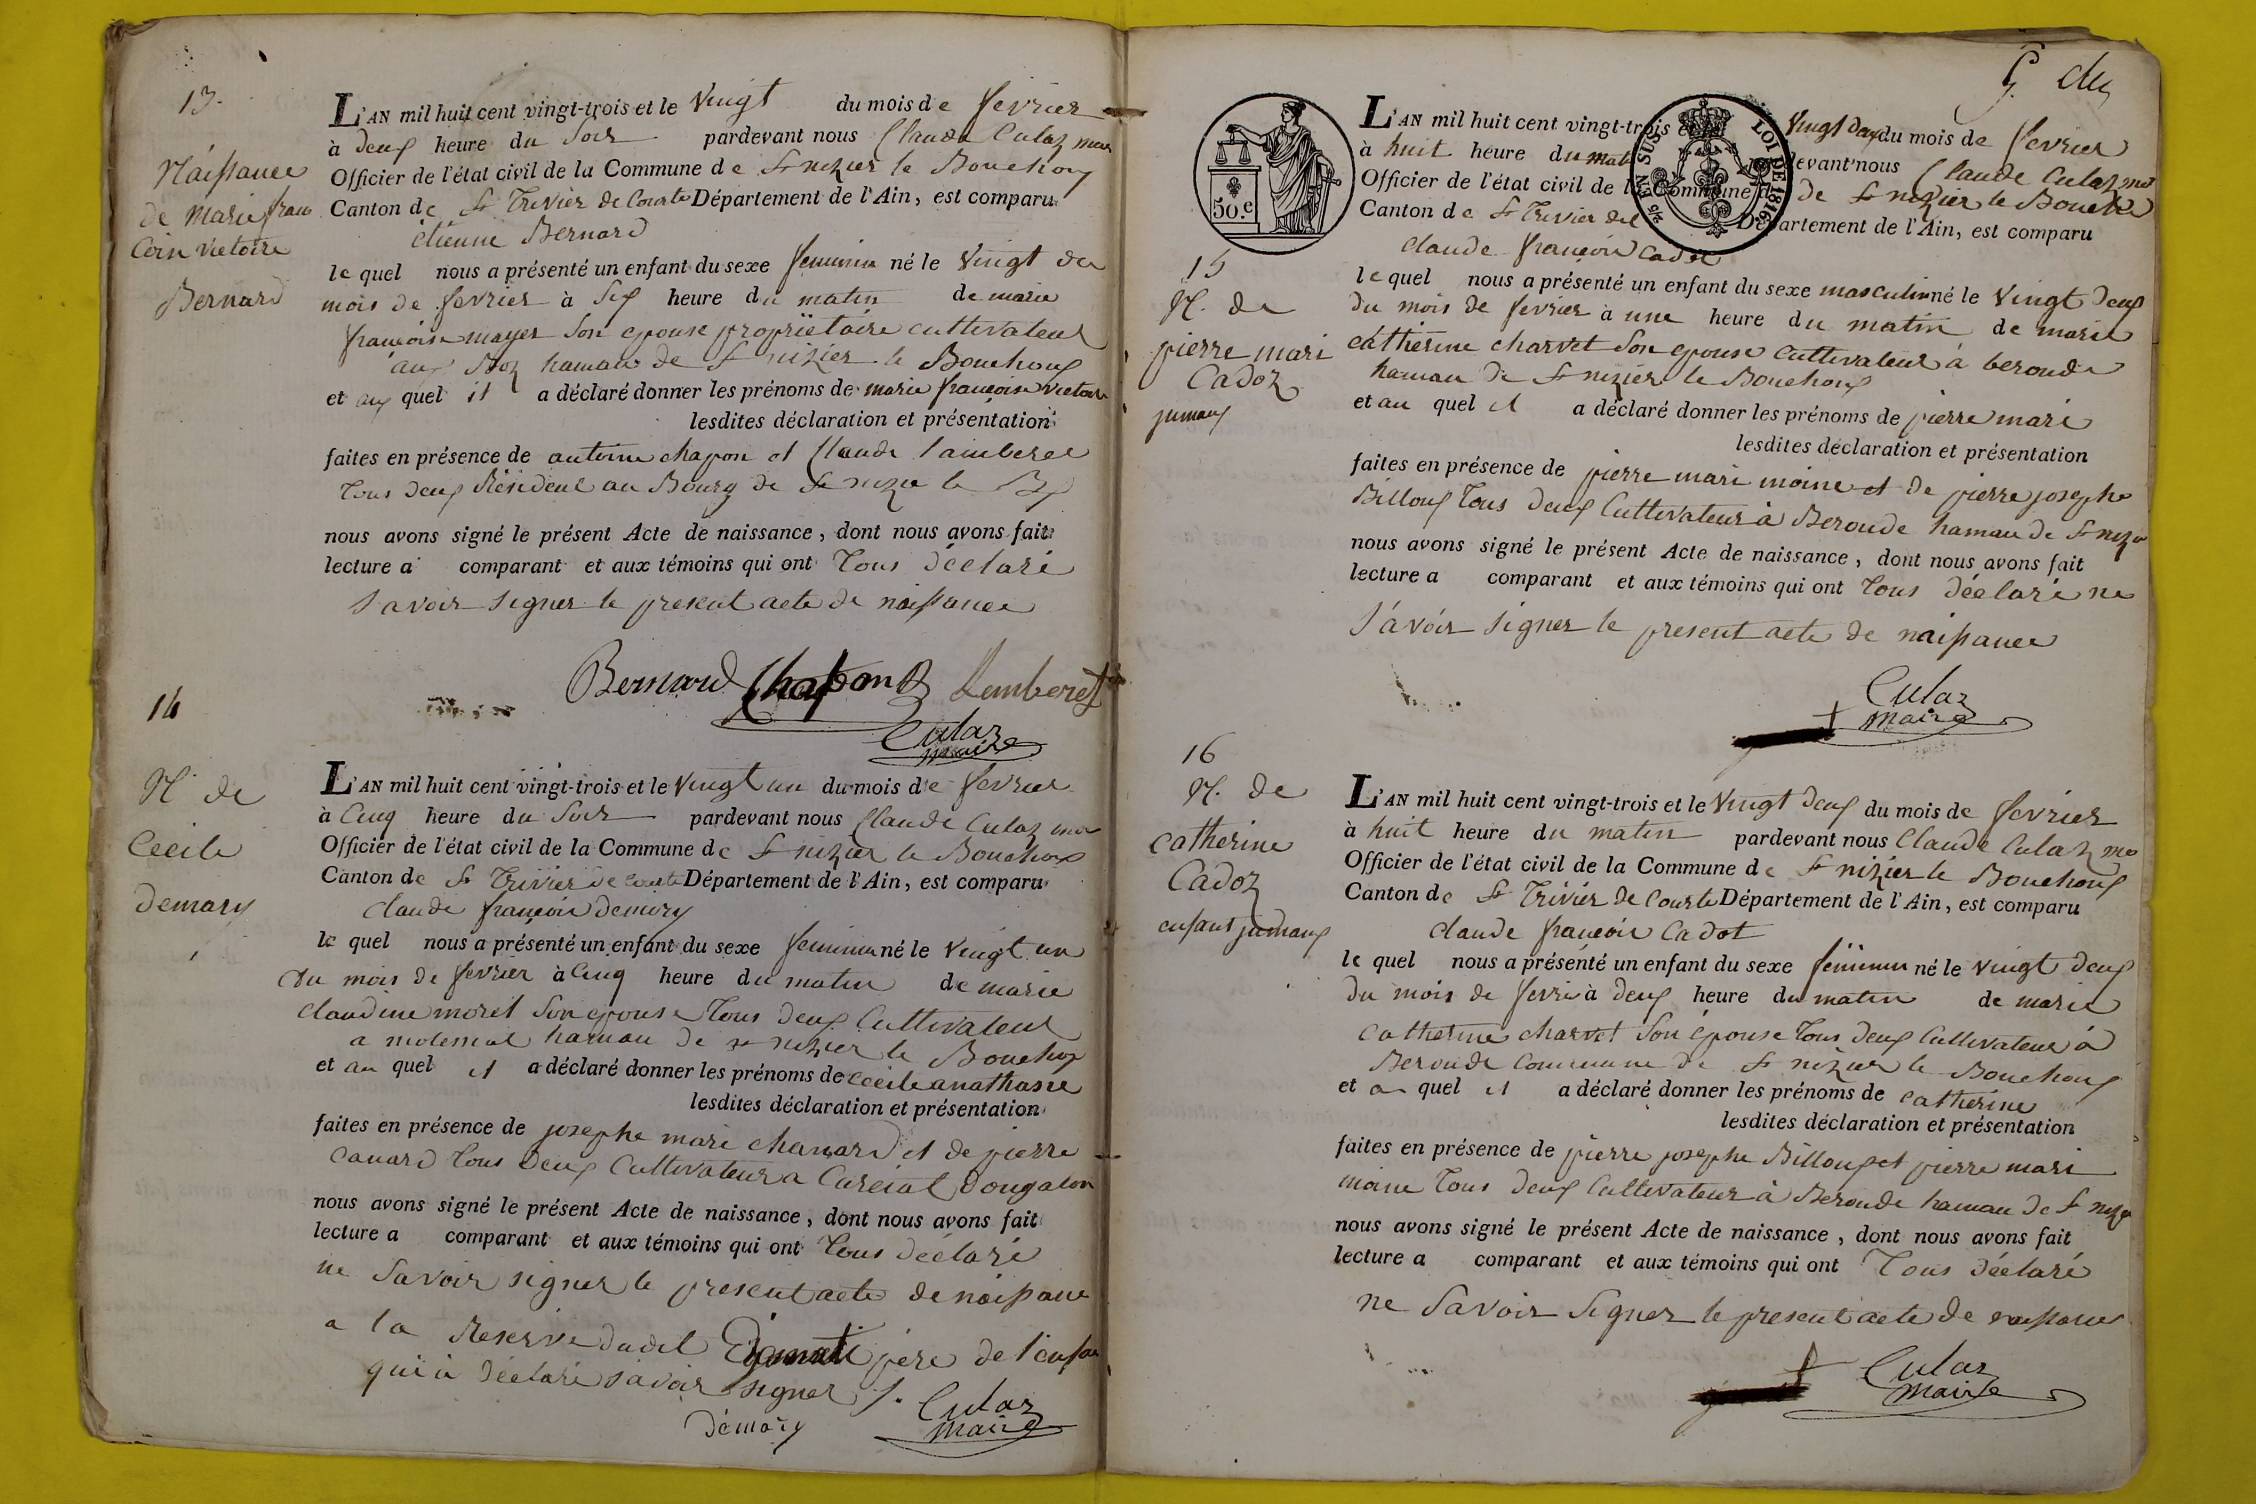 13.
Naissance
de Marie fran
coin victoire
Bernard
L'AN mil huit cent vingt-trois et le vingt du mois de fevrier
à deux heure du soir pardevant nous Claude Culaz
Officier de l'état civil de la Commune de St nizier le Bouchoux
Canton de St Trivier de Courte Département de l'Ain, est comparu
étienne Bernard
le quel nous a présenté un enfant du sexe feminin né le vingt du
mois de fevrier à six heure du matin de marie
françoise mayer son epouse propriétaire cultivateur
aux hamau de St nizier le Bouchoux
et au quel il a déclaré donner les prénoms de marie françoise victoire
lesdites déclaration et présentation
faites en présence de antoine chapon et Claude Lamberet
tous deux Résident au Bourg de St nizie le
nous avons signé le présent Acte de naissance, dont nous avons fait
lecture a comparant et aux témoins qui ont tous déclaré
savoir signer le present acte de naissance
Bernard Chapon Lemberet
Culaz
maire
14
N. de
Cecile
demary
L'AN mil huit cent vingt-trois et le vingt un du mois de fevrier
à cinq heure du soir pardevant nous Claude Culaz
Officier de l'état civil de la Commune de St nizier le Bouchoux
Canton de St Trivier de courte Département de l'Ain, est comparu
claude françois demory
le quel nous a présenté un enfant du sexe feminin né le vingt un
du mois de fevrier à cinq heure du matin de marie
claudine morel son epouse tous deux cultivateur
a hamau de st nizier le Bouchoux
et au quel il a déclaré donner les prénoms de cecile anathasie
lesdites déclaration et présentation
faites en présence de josephe marie chanard et de pierre
canard tous deux cultivateur a Curciat dongalon
nous avons signé le présent Acte de naissance, dont nous avons fait
lecture a comparant et aux témoins qui ont tous déclaré
ne savoir signer le present acte de naissance
a la Reserve dudit pere de l'enfan
qui à déclaré savoir signer
démory
Culaz
maire
50.c
EN SUS LOI DE 1816.
15
N. de
pierre mari
Cadoz
jumaux
L'AN mil huit cent vingt-trois et vingt deux du mois de fevrier
à huit heure du mat devant nous Claude Culaz
Officier de l'état civil de la Commune de St nizier le Bouch
Canton de St Trivier de Département de l'Ain, est comparu
claude françois cadot
le quel nous a présenté un enfant du sexe masculin né le vingt deux
du mois de fevrier à une heure du matin de marie
cathérine charvet son epouse cultivateur à beroude
hamau de St nizier le Bouchoux
et au quel il a déclaré donner les prénoms de pierre mari
lesdites déclaration et présentation
faites en présence de pierre mari moine et de pierre josephe
Billoux tous deux cultivateur à Beroude hamau de St nizie
nous avons signé le présent Acte de naissance, dont nous avons fait
lecture a comparant et aux témoins qui ont tous déclaré ne
savoir signer le present acte de naissance
Culaz
maire
16
N. de
catherine
Cadoz
enfant jumaux
L'AN mil huit cent vingt-trois et le vingt deux du mois de fevrier
à huit heure du matin pardevant nous Claude Culaz
Officier de l'état civil de la Commune de St nizier le Bouchoux
Canton de St Trivier de Courte Département de l'Ain, est comparu
claude françois cadot
le quel nous a présenté un enfant du sexe féminin né le vingt deux
du mois de fevrie à deux heure du matin de marie
catherine charvet son épouse tous deux cultivateur à
Beroude commune de St nizier le Bouchoux
et a quel il a déclaré donner les prénoms de catherine
lesdites déclaration et présentation
faites en présence de pierre josephe Billoux et pierre mari
moine tous deux cultivateur à Beroude hamau de St nizie
nous avons signé le présent Acte de naissance, dont nous avons fait
lecture a comparant et aux témoins qui ont tous déclaré
ne savoir signer le present acte de naissance
Culaz
maire